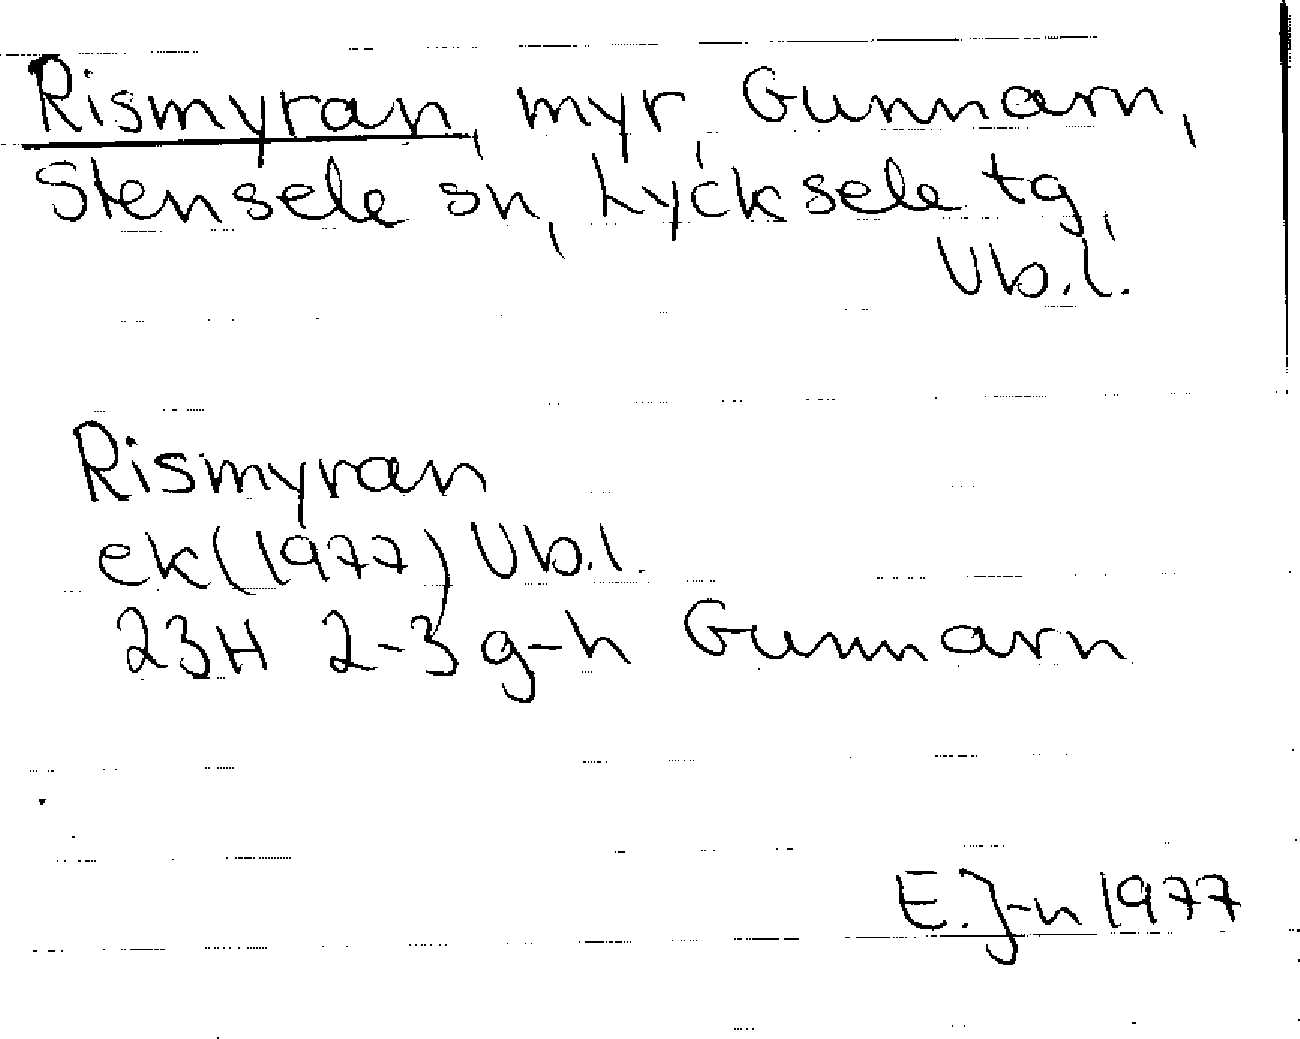 Rismyran, myr, Gunnarn,
Stensele sn, Lycksele tg,
Vb.l.
Rismyran
ek (1977) Vb.l.
23H 2-3 g-h Gunnarn
E. J-n 1977